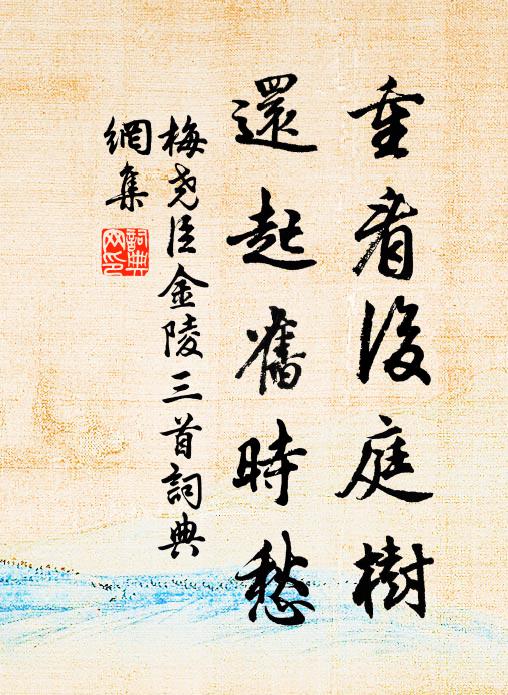 重看後庭樹
還起舊時愁
梅尭臣金陵三首詞典
網集
詞典
网印